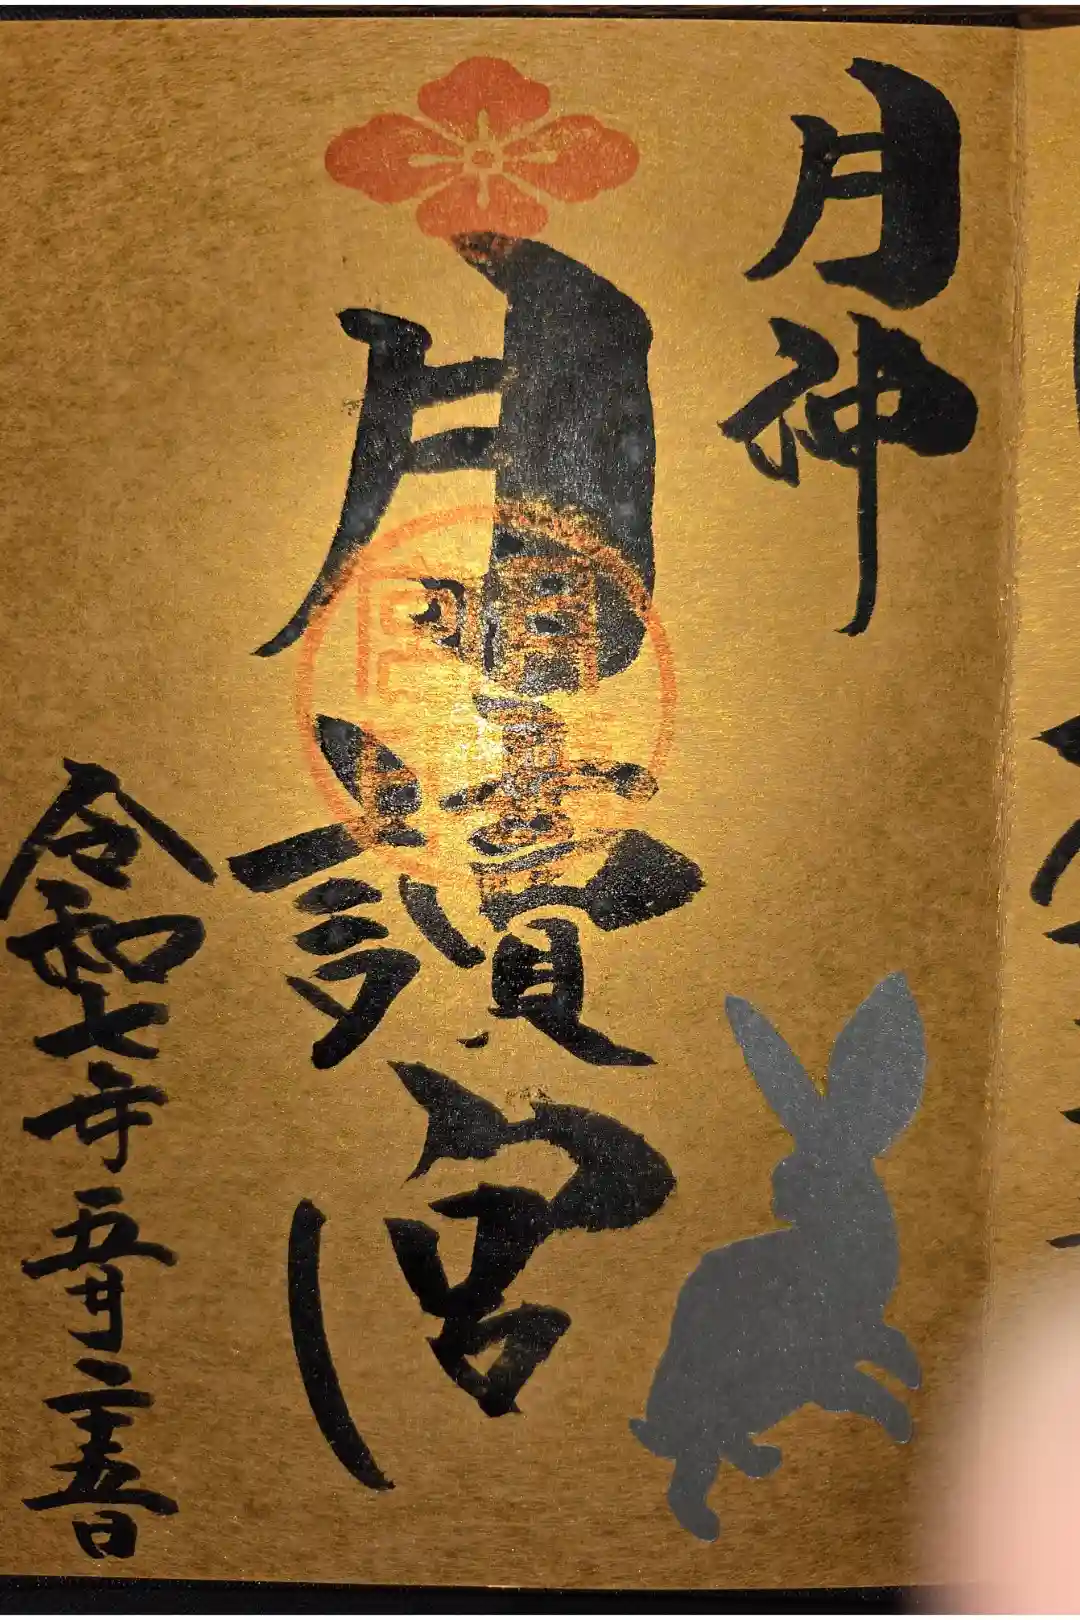 月神
月讀宮
令和七年五月二十五日